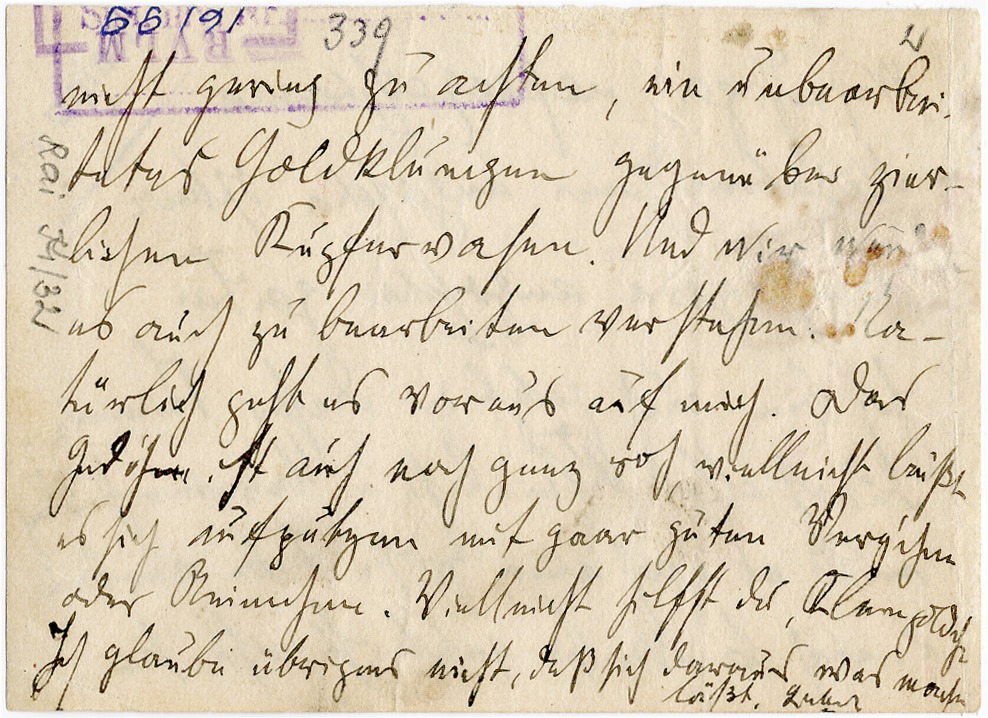 66/91
339
Rai 74/32
nicht gering zu achten, ein unbearbei-
tetes Goldklumpen gegenüber zier-
lichen Kupfervasen. Und wir
es auch zu bearbeiten verstehen. Na-
türlich geht es voraus auf mich. Das
ist auch noch ganz roh vielleicht läßt
es sich aufputzen mit paar guten Versichen
oder Reimchen. Vielleicht hilfst du,
Ich glaube übrigens nicht, daß sich daraus was machen
läßt.